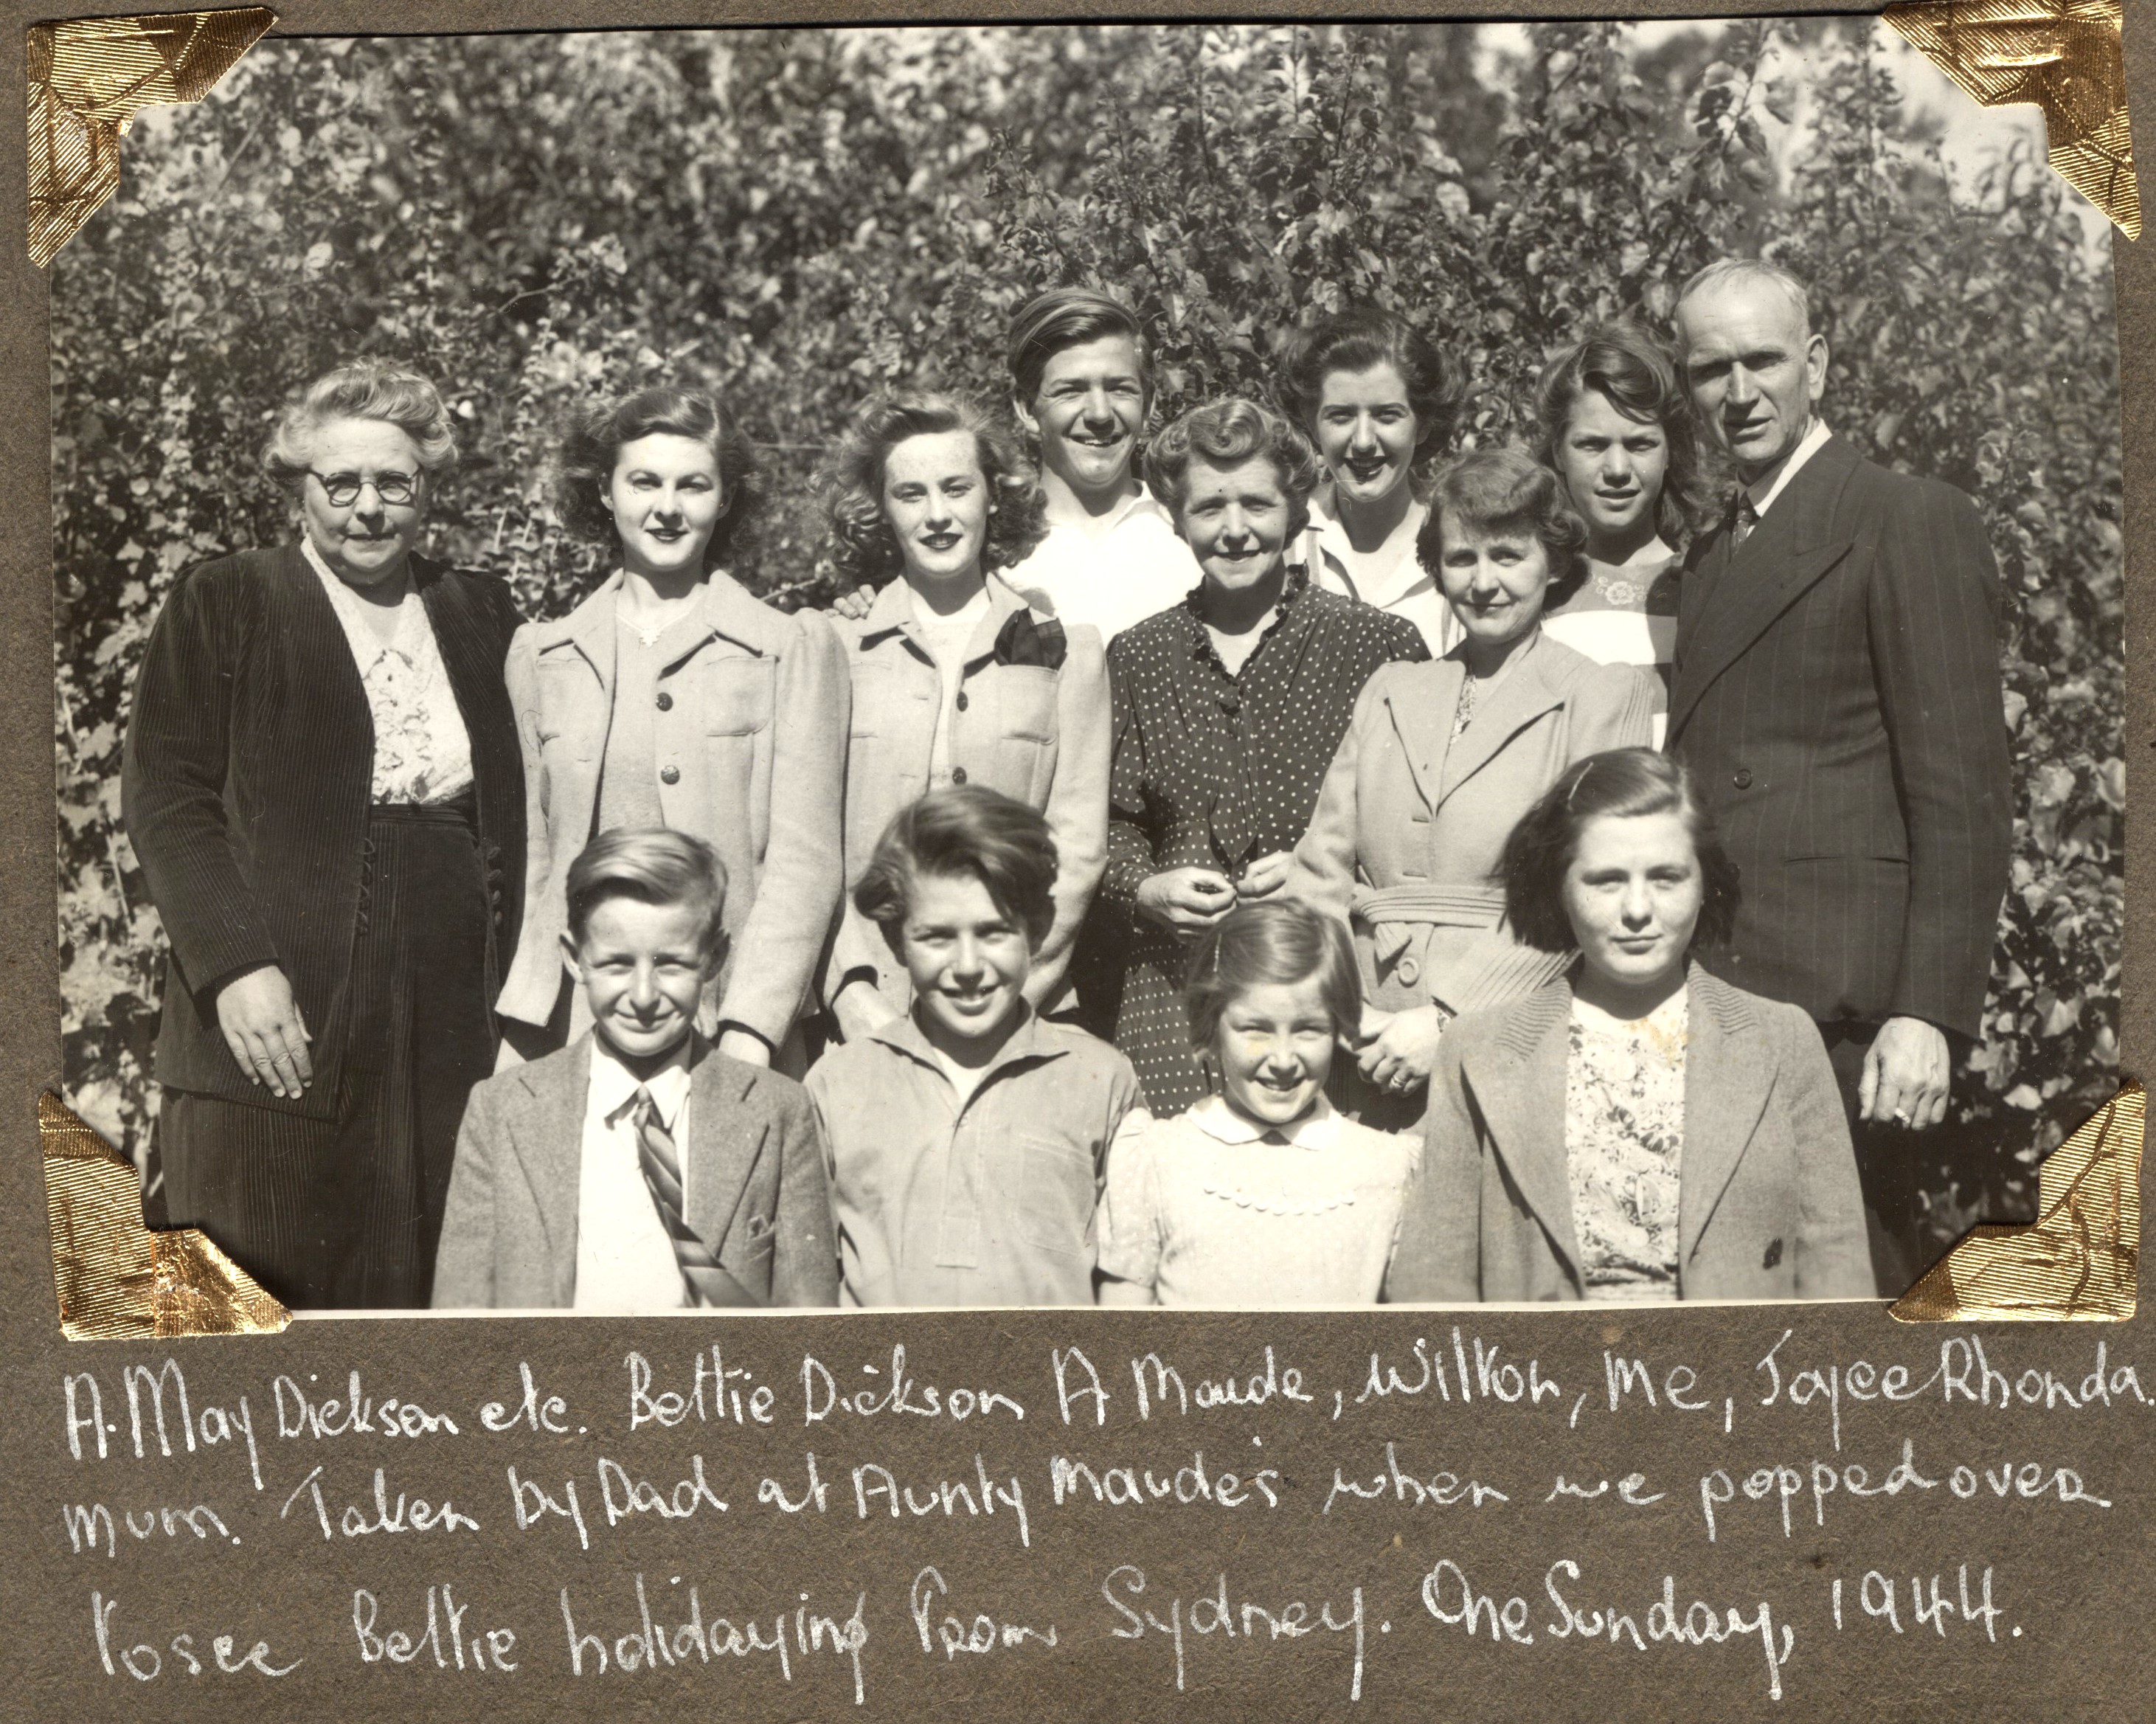 A. May Dickson etc. Bettie Dickson A Maude, Wilton, Me, Joyce Rhonda.
Mum. Taken by Dad at Aunty Maude's when we popped over
to see Bettie holidaying from Sydney. One Sunday, 1944.